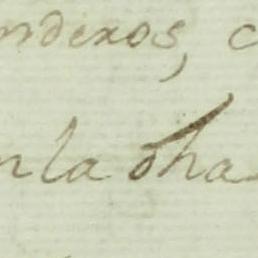 ndexos, c
n la dha